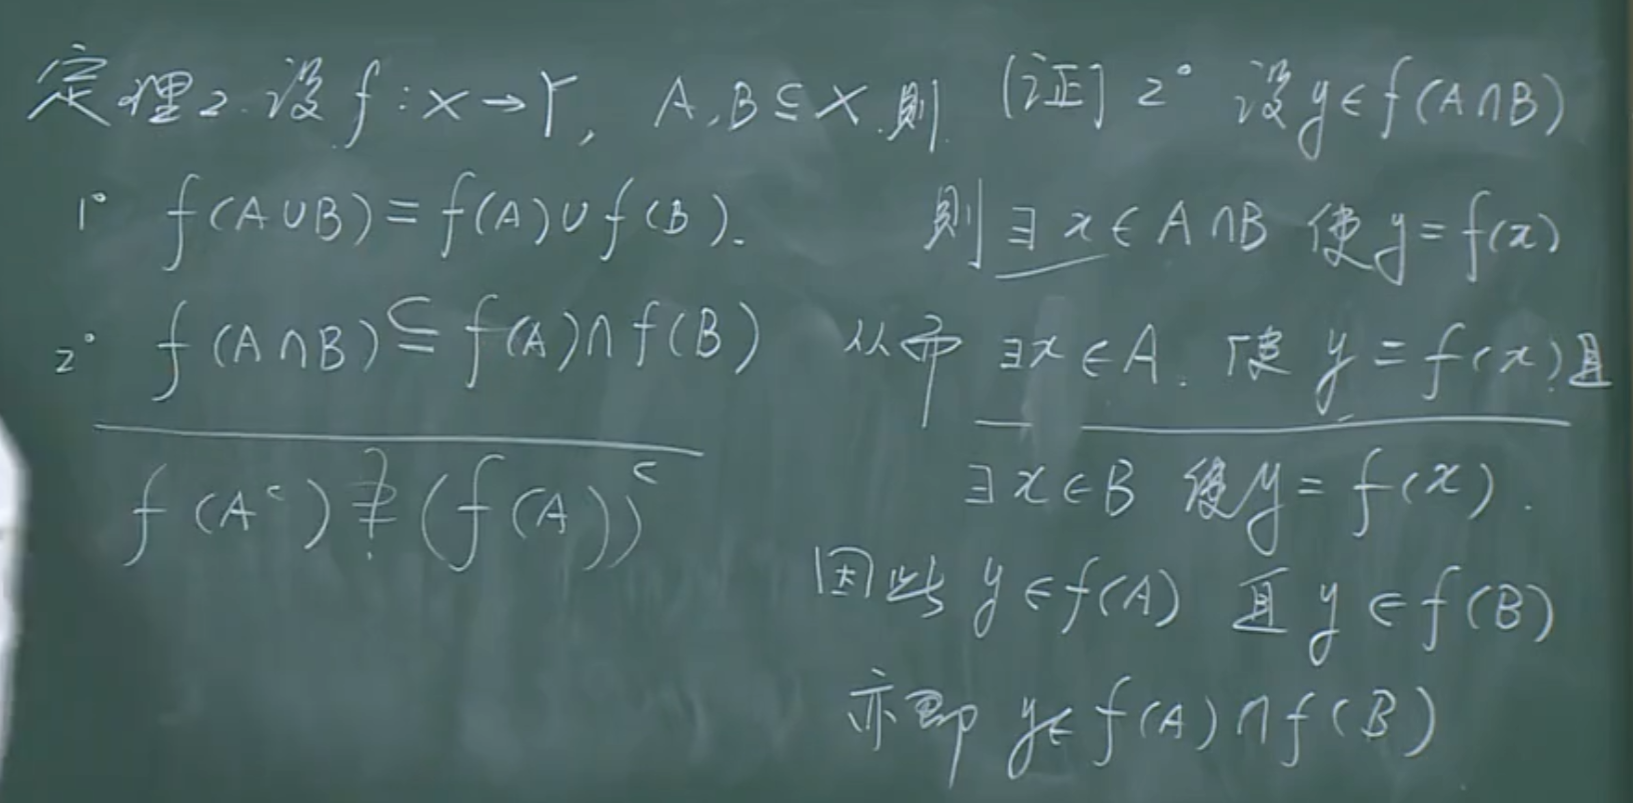 定理2.设f:X→Y, A,B⊆X.则
1° f(A∪B)=f(A)∪f(B).
2° f(A∩B)⊆f(A)∩f(B)
f(Aᶜ) (f(A))ᶜ
[证] 2° 设y∈f(A∩B)
则∃x∈A∩B 使y=f(x)
从而 ∃x∈A. 使 y=f(x)且
∃x∈B 使y=f(x).
因此 y∈f(A) 且 y∈f(B)
亦即 y∈f(A)∩f(B)